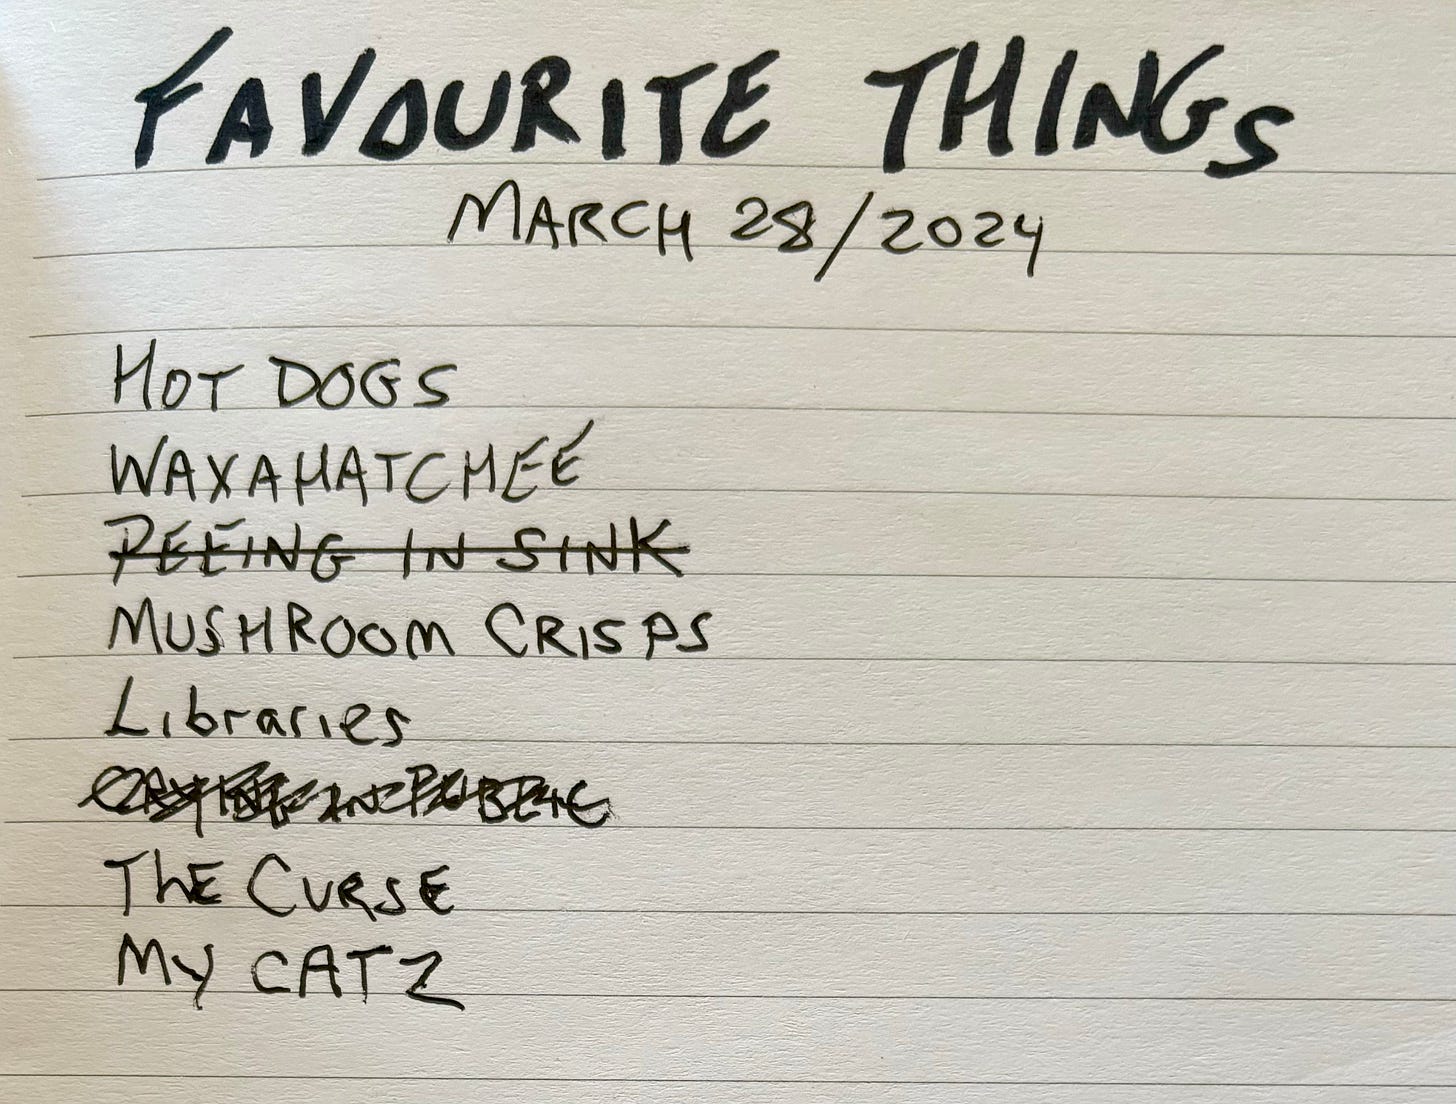 FAVOURITE THINGS
MARCH 28/2024
HOT DOGS
WAXAHATCHEE
PEEING IN SINK
MUSHROOM CRISPS
Libraries
IN PUBLIC
ThE CURSE
My CATZ